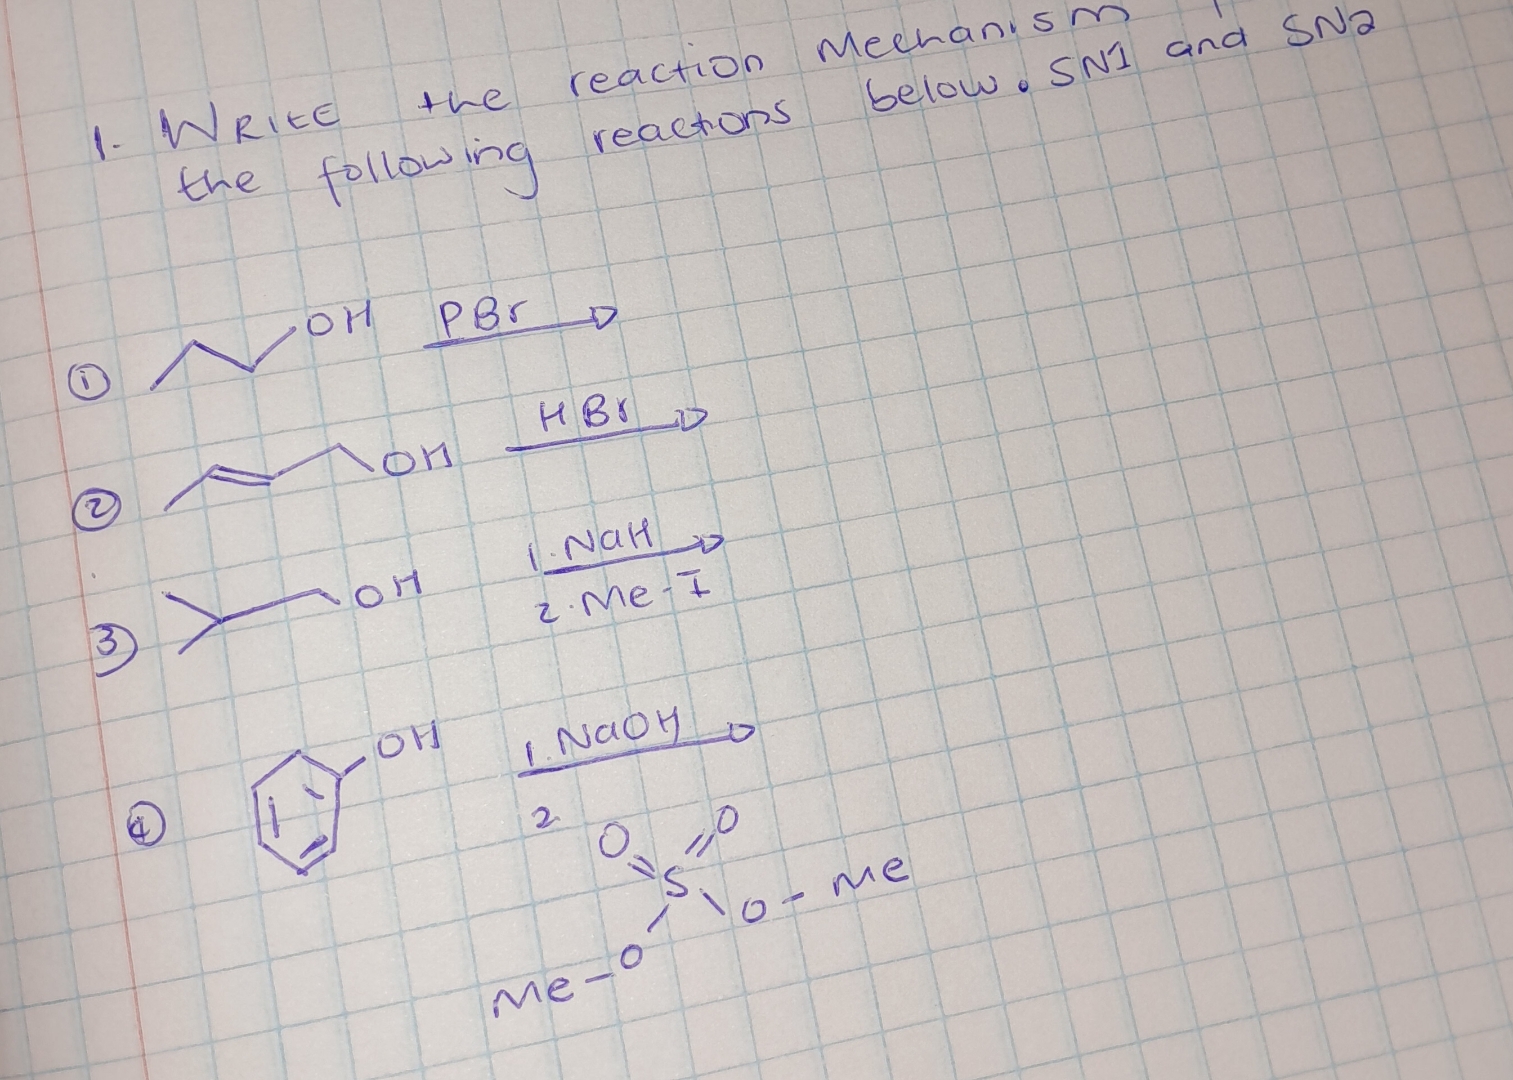 1. WRITE the reaction Mechanism
the following reactions below. SN1 and SN2
① OH PBr
② OH HBr
③ OH 1. NaH
2. Me-I
④ OH 1. NaOH
2. O O
S
O - Me
Me - O